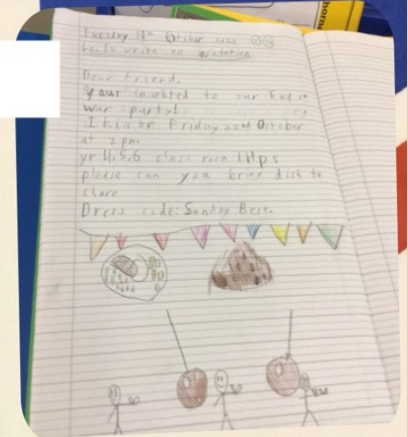 Tuesday 19th October 2021
Lo: To write an invitation
Dear friend,
Your invited to our End o
war party!
It is on Friday 22nd October
at 2 pm.
yr 4,5,6 class room
please can you bring dish to
share
Dress code: Sunday Best.